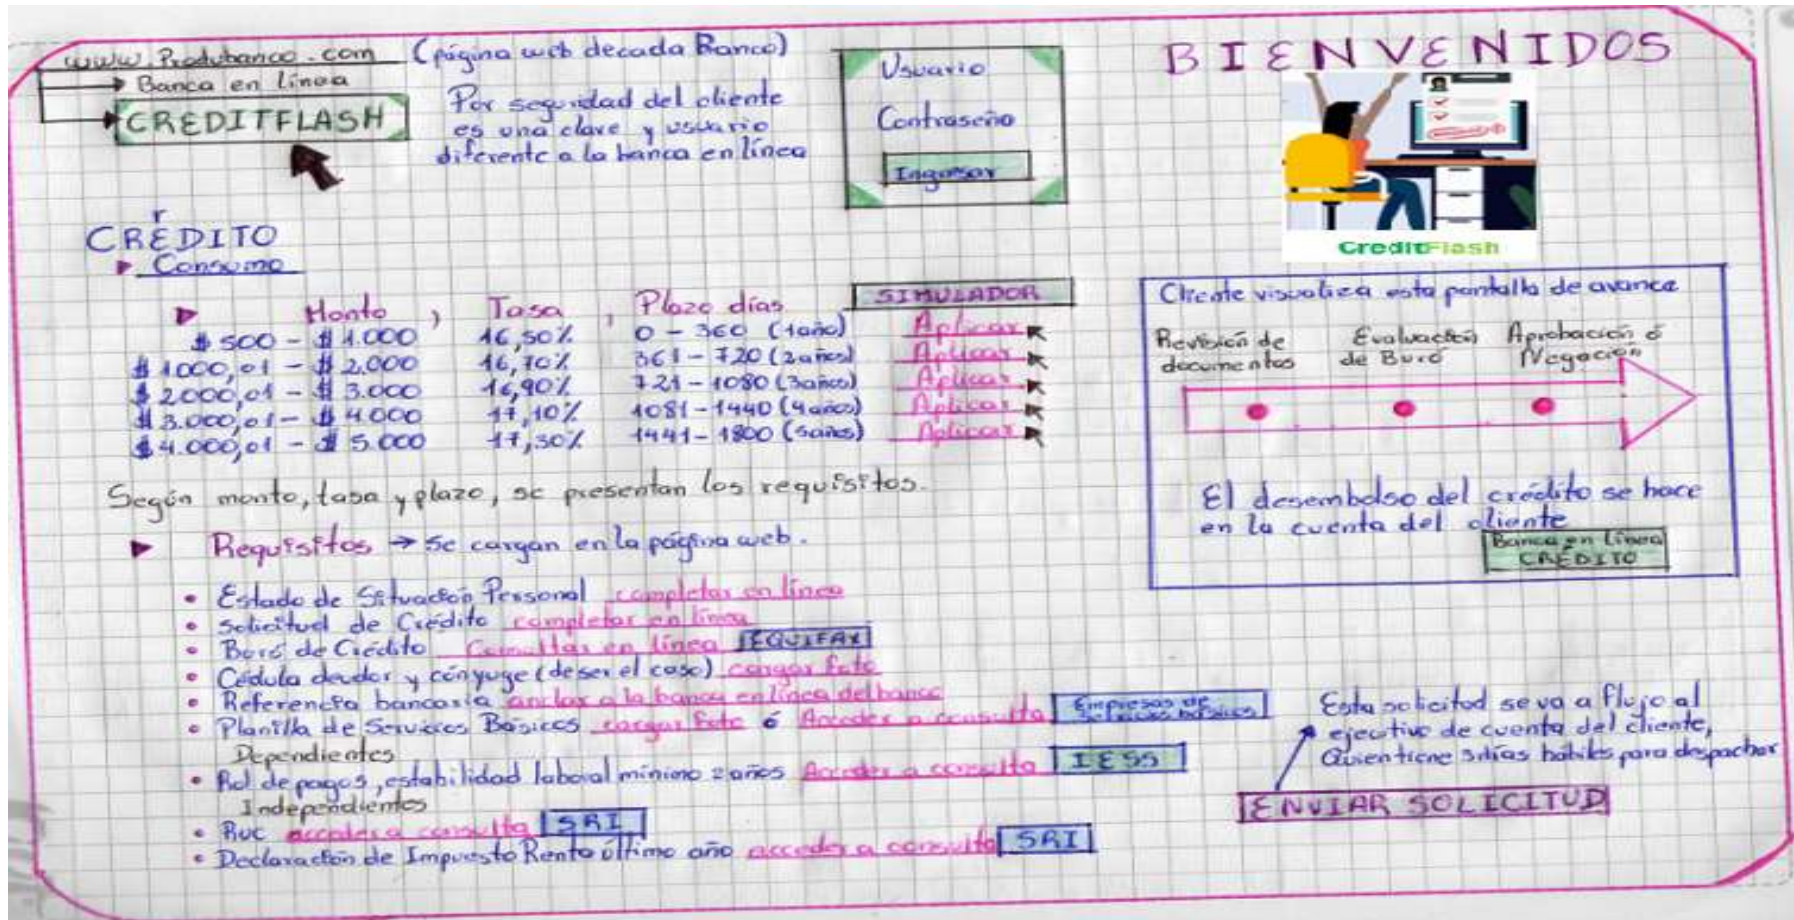 www.Produbanco.com (página web decada Banco)
Banca en línea
CREDITFLASH
Por seguridad del cliente
es una clave y usuario
diferente a la banca en línea
Usuario
Contraseña
Ingresar
BIENVENIDOS
CreditFlash
CRÉDITO
Consumo
Monto, Tasa, Plazo días SIMULADOR
$500 - $1.000 16,50% 0 - 360 (1año) Aplicar
$1000,01 - $2.000 16,70% 361 - 720 (2años) Aplicar
$2000,01 - $3.000 16,90% 721 - 1080 (3años) Aplicar
$3.000,01 - $4.000 17,10% 1081 - 1440 (4años) Aplicar
$4.000,01 - $5.000 17,30% 1441 - 1800 (5años) Aplicar
Según monto, tasa y plazo, se presentan los requisitos.
Requisitos → Se cargan en la página web.
• Estado de Situación Personal completar en línea
• Solicitud de Crédito completar en línea
• Buró de Crédito Consultar en línea EQUIFAX
• Cédula deudor y cónyuge (deser el caso) cargar foto
• Referencia bancaria anclar a la banca en línea del banco
• Planilla de Servicios Básicos cargar foto ó Acceder a consulta Empresas de servicios básicos
Dependientes
• Rol de pagos, estabilidad laboral mínimo 2 años Acceder a consulta IESS
Independientes
• Ruc acceder a consulta SRI
• Declaración de Impuesto Renta último año acceder a consulta SRI
Cliente visualiza esta pantalla de avance
Revisión de documentos
Evaluación de Buró
Aprobación ó Negación
El desembolso del crédito se hace
en la cuenta del cliente
Banca en línea
CRÉDITO
Esta solicitud se va a flujo al
ejecutivo de cuenta del cliente,
Quien tiene 3 días hábiles para despachar
ENVIAR SOLICITUD